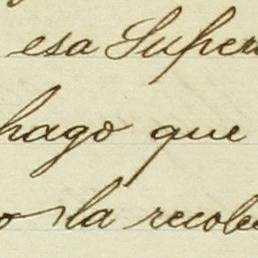 esa Super
hago que
o la recole